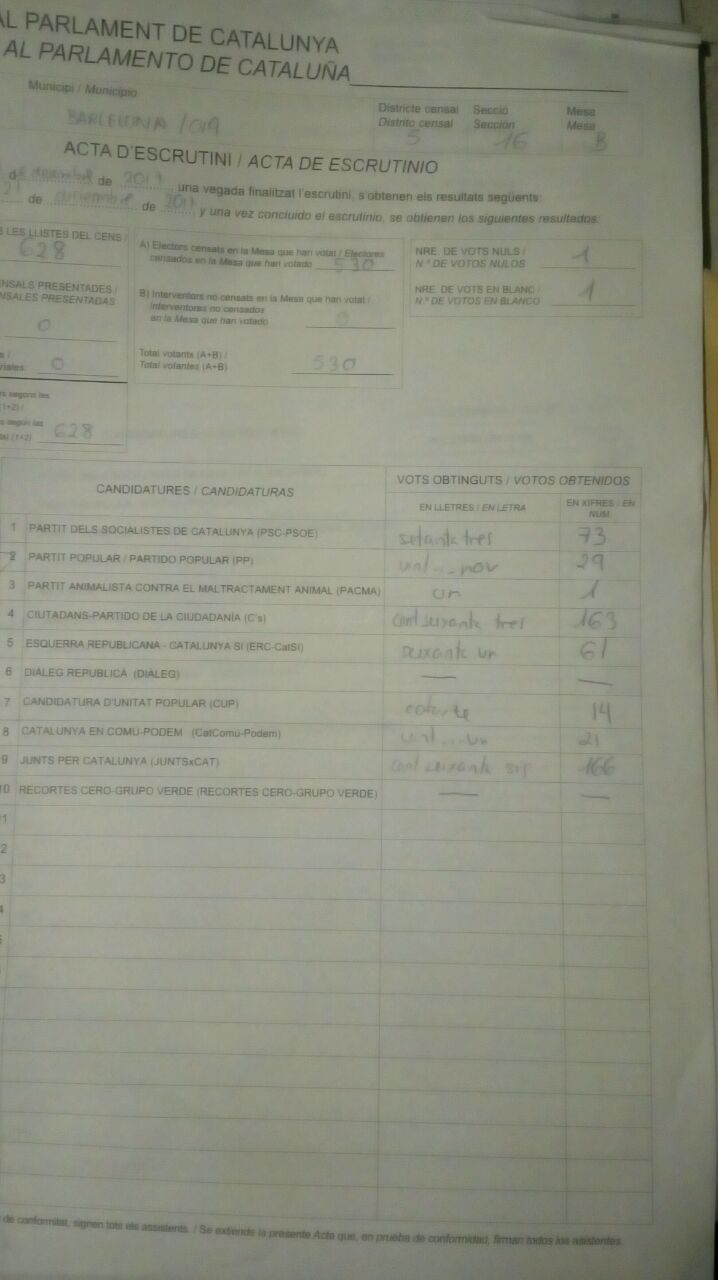 AL PARLAMENT DE CATALUNYA
AL PARLAMENTO DE CATALUÑA
Municipi / Municipio
BARCELONA / 019
Districte censal Secció Mesa
Distrito censal Sección Mesa
5 16 B
ACTA D'ESCRUTINI / ACTA DE ESCRUTINIO
de desembre de 2017 una vegada finalitzat l'escrutini, s'obtenen els resultats següents:
21 de de 2017 y una vez concluido el escrutinio, se obtienen los siguientes resultados:
LES LLISTES DEL CENS /
628
ENSALS PRESENTADES /
NSALES PRESENTADAS
0
riales: 0
rs segons les
(1+2) /
s según las
tal (1+2) 628
A) Electors censats en la Mesa que han votat / Electores
censados en la Mesa que han votado 530
B) Interventors no censats en la Mesa que han votat /
Interventores no censados
en la Mesa que han votado 0
Total votants (A+B) /
Total votantes (A+B) 530
NRE. DE VOTS NULS /
N.º DE VOTOS NULOS 1
NRE. DE VOTS EN BLANC /
N.º DE VOTOS EN BLANCO 1
CANDIDATURES / CANDIDATURAS VOTS OBTINGUTS / VOTOS OBTENIDOS
EN LLETRES / EN LETRA EN XIFRES / EN NUM.
1 PARTIT DELS SOCIALISTES DE CATALUNYA (PSC-PSOE) setanta tres 73
2 PARTIT POPULAR / PARTIDO POPULAR (PP) vint...nou 29
3 PARTIT ANIMALISTA CONTRA EL MALTRACTAMENT ANIMAL (PACMA) un 1
4 CIUTADANS-PARTIDO DE LA CIUDADANÍA (C's) cent seixanta tres 163
5 ESQUERRA REPUBLICANA - CATALUNYA SÍ (ERC-CatSí) seixanta un 61
6 DIÀLEG REPUBLICÀ (DIÀLEG) — —
7 CANDIDATURA D'UNITAT POPULAR (CUP) catorze 14
8 CATALUNYA EN COMÚ-PODEM (CatComú-Podem) vint...un 21
9 JUNTS PER CATALUNYA (JUNTSxCAT) cent seixanta sis 166
10 RECORTES CERO-GRUPO VERDE (RECORTES CERO-GRUPO VERDE) — —
1
2
3
4
de conformitat, signen tots els assistents. / Se extiende la presente Acta que, en prueba de conformidad, firman todos los asistentes.